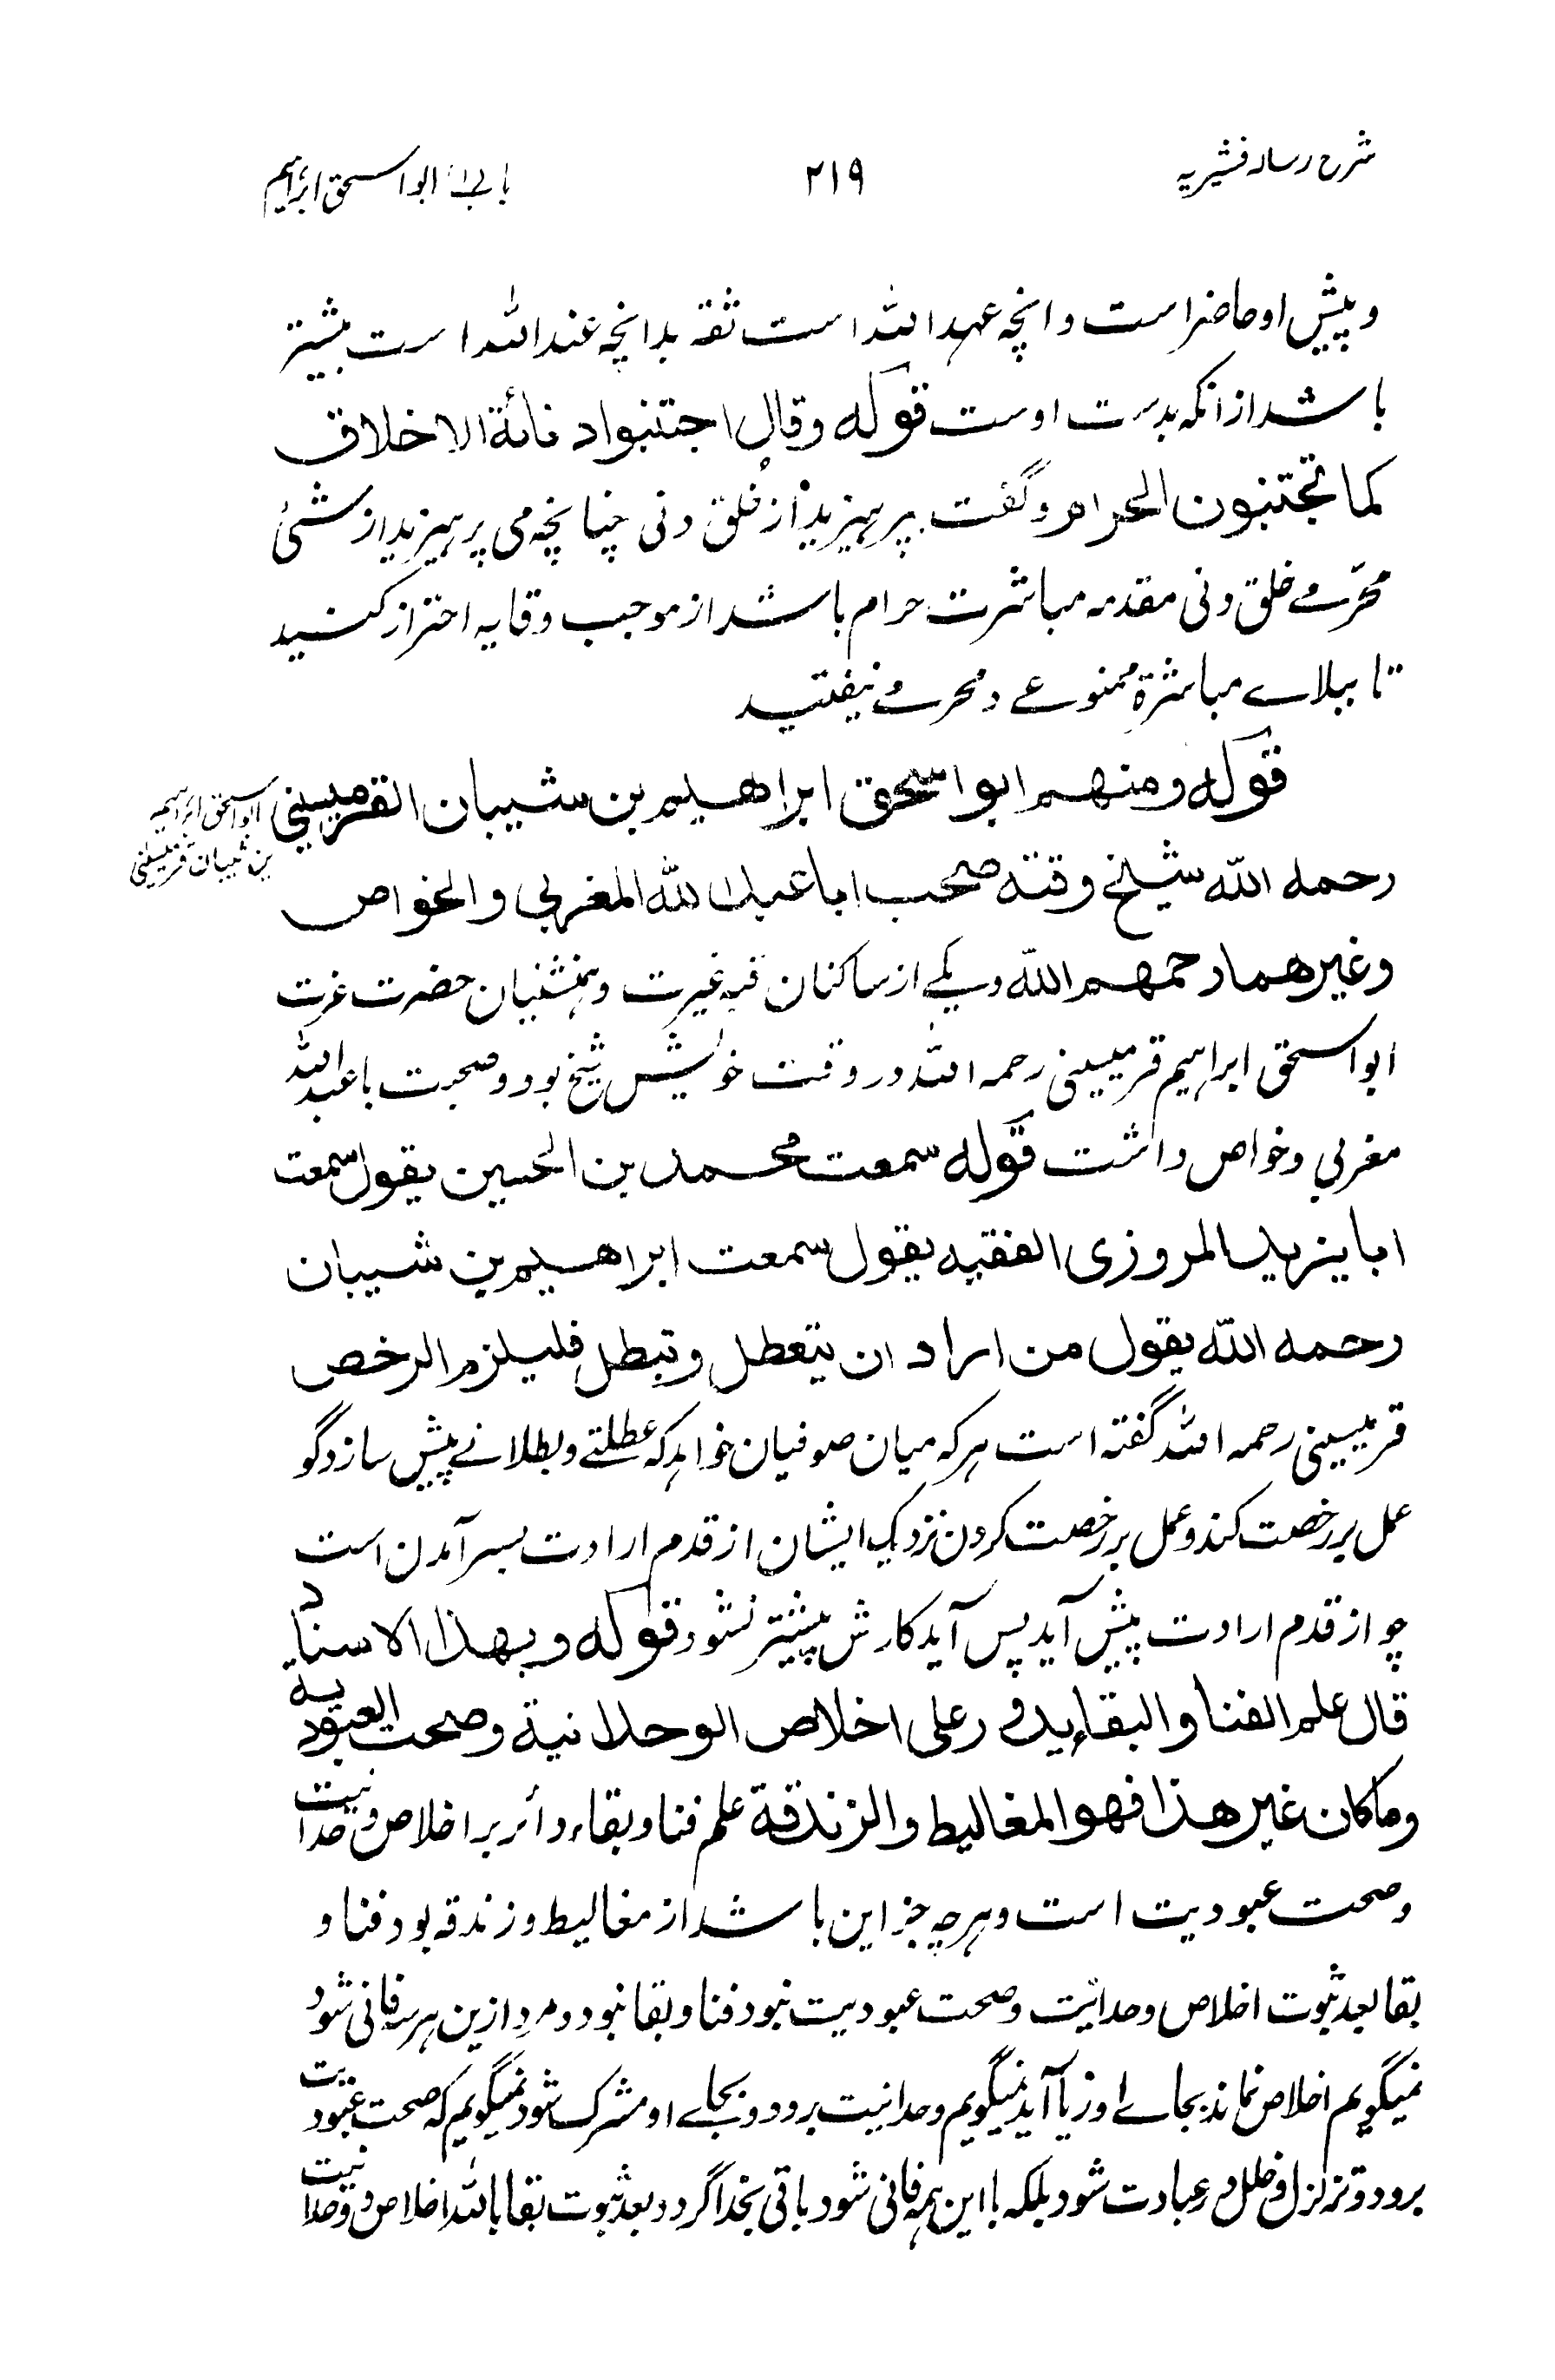 شرح رسالہ قشیریہ
۲۱۹
باب ابو اسحق ابراہیم
و پیش او حاضر است و انچہ عہد اللہ است ثقہ بدانچہ عند اللہ است بیشتر
باشد از انکہ بدست اوست قوله وقال اجتنبوا دنائة الاخلاق
كما تجتنبون الحرام و گفت بپرہیزید از خُلق دنی چنانچہ می پرہیزید از شئی
محرّمے خلق دنی مقدمہ مباشرت حرام باشد از موجب وقایہ احتراز کنید
تا ببلاے مباشرۃ ممنوعے و محرمے نیفتید
قوله ومنهم ابو اسحق ابراهيم بن شيبان القرميسيني
ابو اسحق ابراہیم
بن شیبان قرمیسینی
رحمه الله شيخ وقته صحب ابا عبد الله المغربي والخواص
وغيرهما رحمهم الله و یکے از ساکنان قبہ غیرت و ہمنشنیان حضرت عزت
ابو اسحق ابراہیم قرمیسینی رحمہ اللہ در وقت خویش شیخ بود و صحبت با عبد اللہ
مغربی و خواص داشت قوله سمعت محمد بن الحسين يقول سمعت
ابا يزيد المروزى الفقيه يقول سمعت ابراهيم بن شيبان
رحمه الله يقول من اراد ان يتعطل ويبطل فليلزم الرخص
قرمیسینی رحمہ اللہ گفتہ است ہرکہ میان صوفیان خواہد کہ عطلتے و بطلانے پیش سازد گو
عمل بر رخصت کند و عمل بر رخصت کردن نزدیک ایشان از قدم ارادت بسر آمدن است
چو از قدم ارادت پیش آید پس آید کارش پیشتر نشود قوله وبهذا الاسناد
قال علم الفنا والبقاء يدور على اخلاص الوحدانية وصحت العبودية
وما كان غير هذا فهو المغاليط والزندقة علم فنا و بقاء دائر بر اخلاص وحدانیت
و صحت عبودیت است و ہرچہ جز این باشد از مغالیط و زندقہ بود فنا و
بقا بعد ثبوت اخلاص وحدانیت و صحت عبودیت نبود فنا و بقا نبود و مرد ازین ہر سہ فانی شود
نمیگویم اخلاص نماند بجاے او ریا آید نمیگویم وحدانیت برود و بجاے او مشرک شود نمیگویم کہ صحت عبودیت
برود و تزلزل و خلل در عبادت شود بلکہ با این ہمہ فانی شود باقی بخدا گردد بعد ثبوت بقا باللہ اخلاص وحدانیت